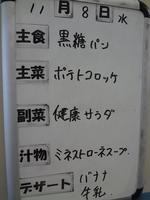 11月8日水
主食 黒糖パン
主菜 ポテトコロッケ
副菜 健康サラダ
汁物 ミネストローネスープ.
デザート バナナ
牛乳.